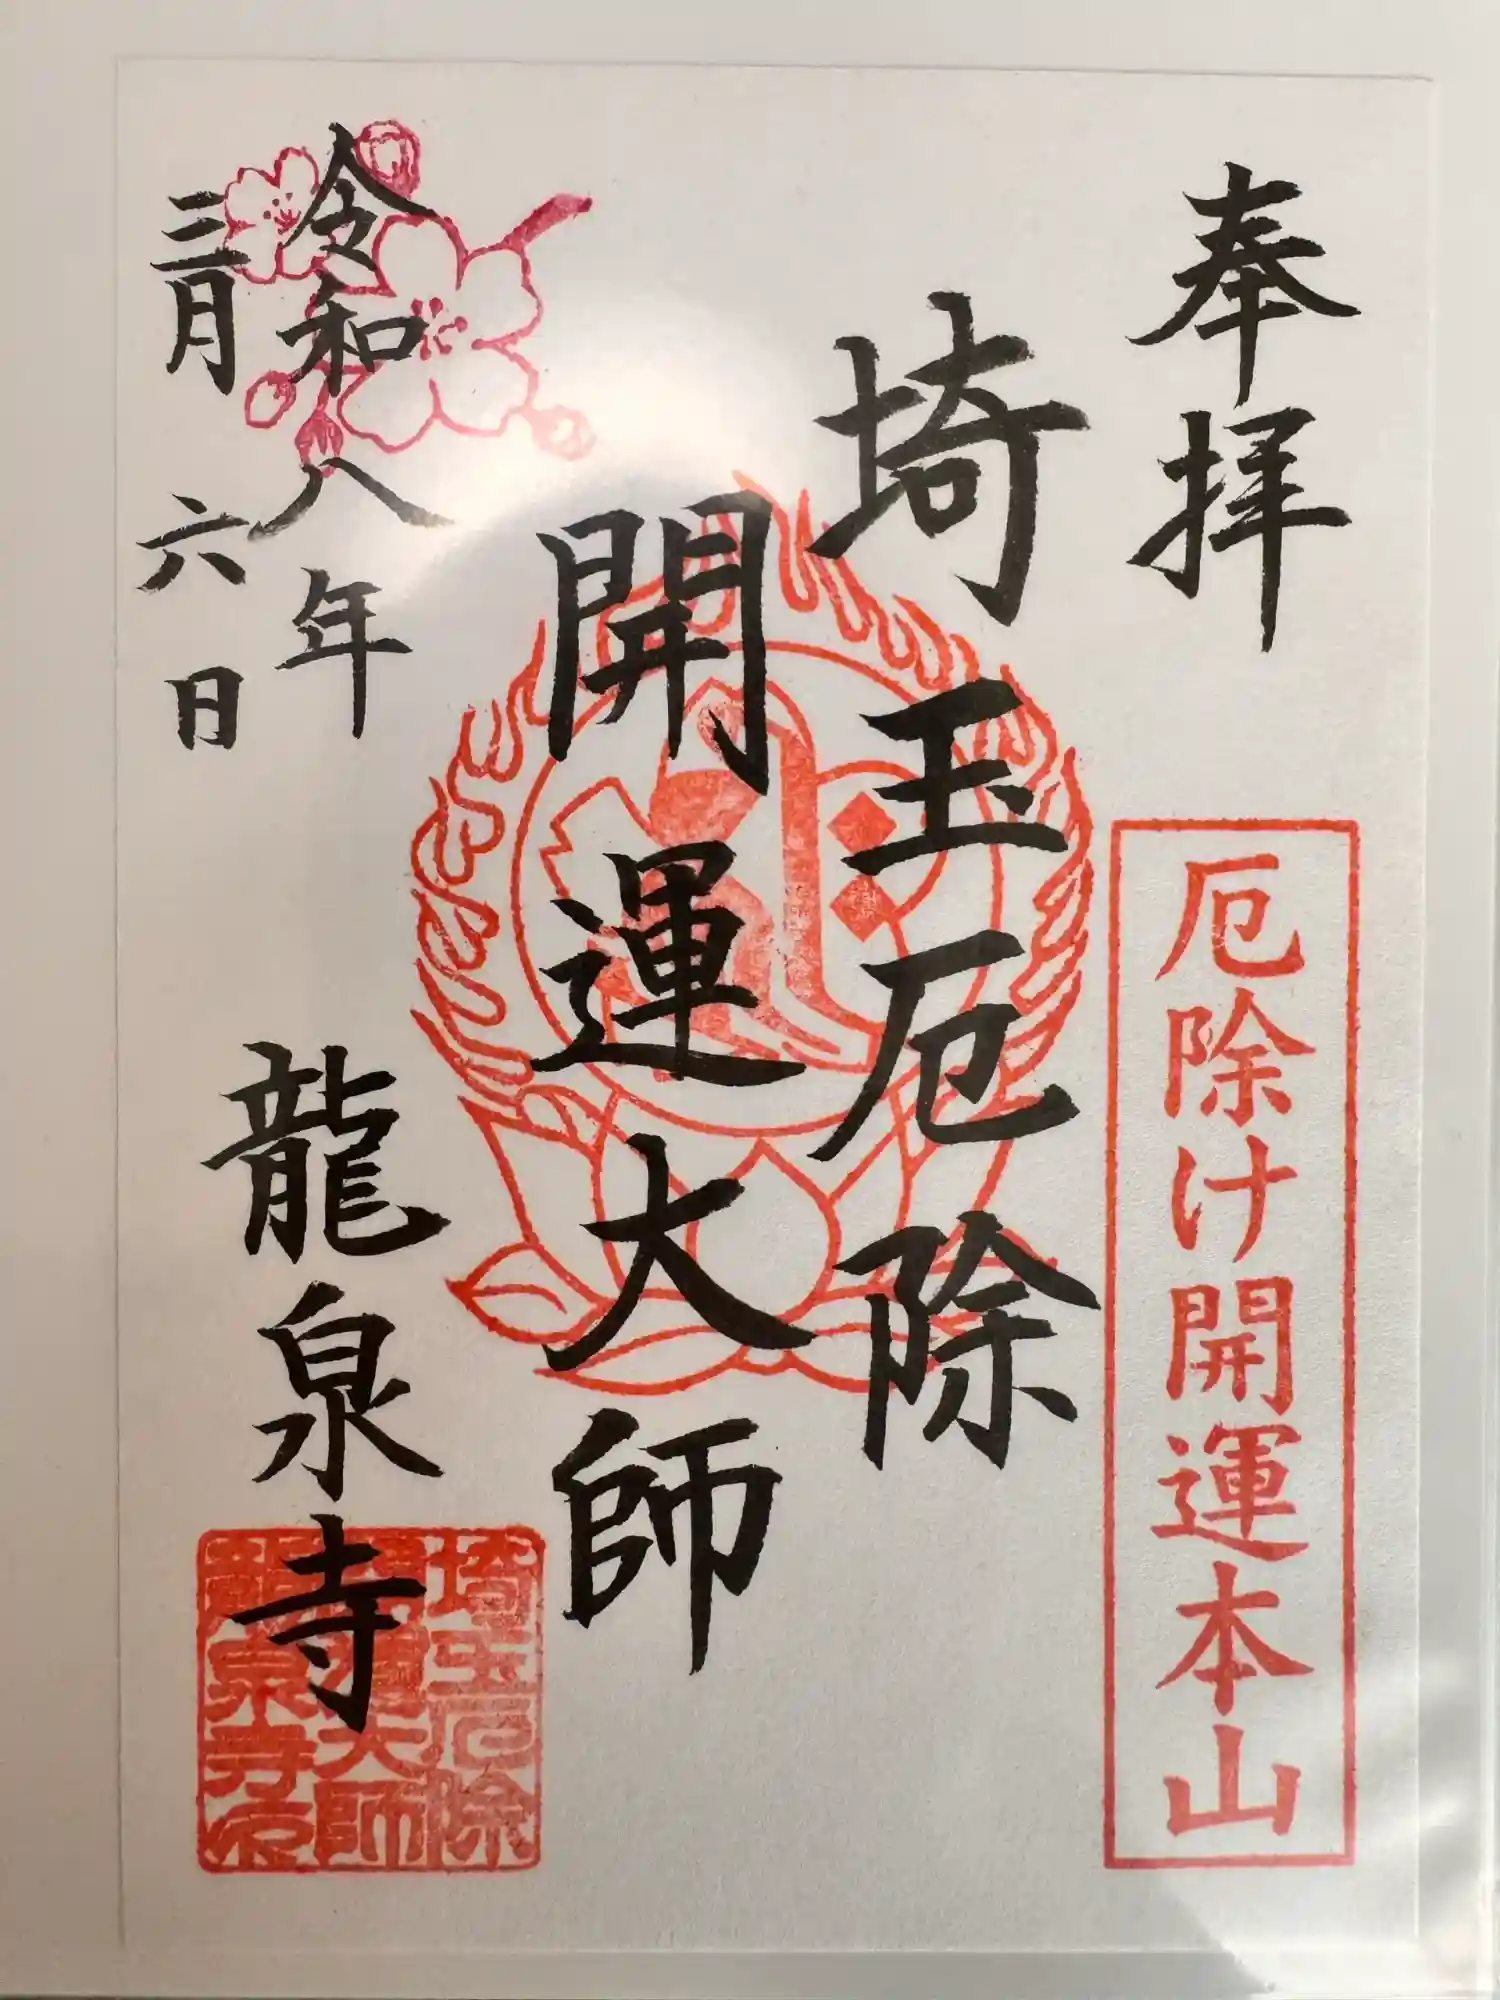 奉拝
厄除け開運本山
埼玉厄除
開運大師
令和八年
三月六日
龍泉寺
埼玉厄除
開運大師
龍泉寺